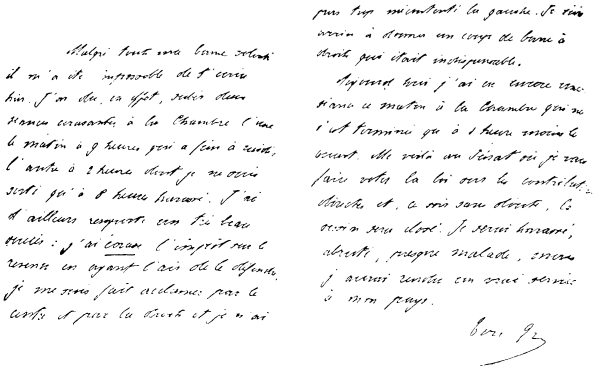 Malgré toute ma bonne volonté
il m'a été impossible de t'écrire
hier. J'ai dû, en effet, subir deux
séances écrasantes à la Chambre l'une
le matin à 9 heures qui a fini à midi,
l'autre à 2 heures dont je ne suis
sorti qu'à 8 heures harassé. J'ai
d'ailleurs remporté un très beau
succès : j'ai écrasé l'impôt sur le
revenu en ayant l'air de le défendre,
je me suis fait acclamer par le
centre et par la droite et je n'ai
pas trop mécontenté la gauche. Je suis
arrivé à donner un coup de barre à
droite qui était indispensable.
Aujourd'hui j'ai eu encore une
séance ce matin à la Chambre qui ne
s'est terminée qu'à 1 heure moins le
quart. Me voilà au Sénat où je vais
faire voter la loi sur les contributions
directes et, ce soir sans doute, la
session sera close. Je serai harassé,
abruti, presque malade, mais
j'aurai rendu un vrai service
à mon pays.